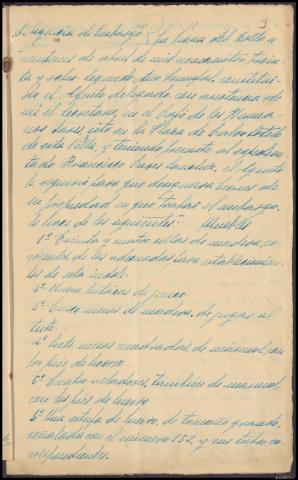 3
Diligencia de Embargo) En Casas del Rollo a
de abril de mil novecientos trein-
ta y ocho segundo año triunfal constitui-
do el Agente delegado con asistencia de
mi el Secretario, en el Café de los Herma-
nos Sares, sito en la Plaza de Calvo Sotelo
de esta Villa, y teniendo presente al expedien-
tado Francisco Sares Sanchez, el Agente
le requirió para que designara bienes de
su propiedad en que trabar el embargo,
lo hace de los siguientes: Muebles
1º Treinta y cuatro sillas de madera, co-
rrientes, de las adecuadas para establecimien-
tos de esta indole.
2º Nueve butacas de junco.
3º Cinco mesas de madera, de jugar al
tute.
4º Siete mesas cuadradas, de marmol, con
los pies de hierro
5º Cuatro veladores, tambien de marmol
con los pies de hierro
6º Una estufa de hierro, de tamaño grande,
señalada con el numero 152, y sus tubos co-
rrespondientes.